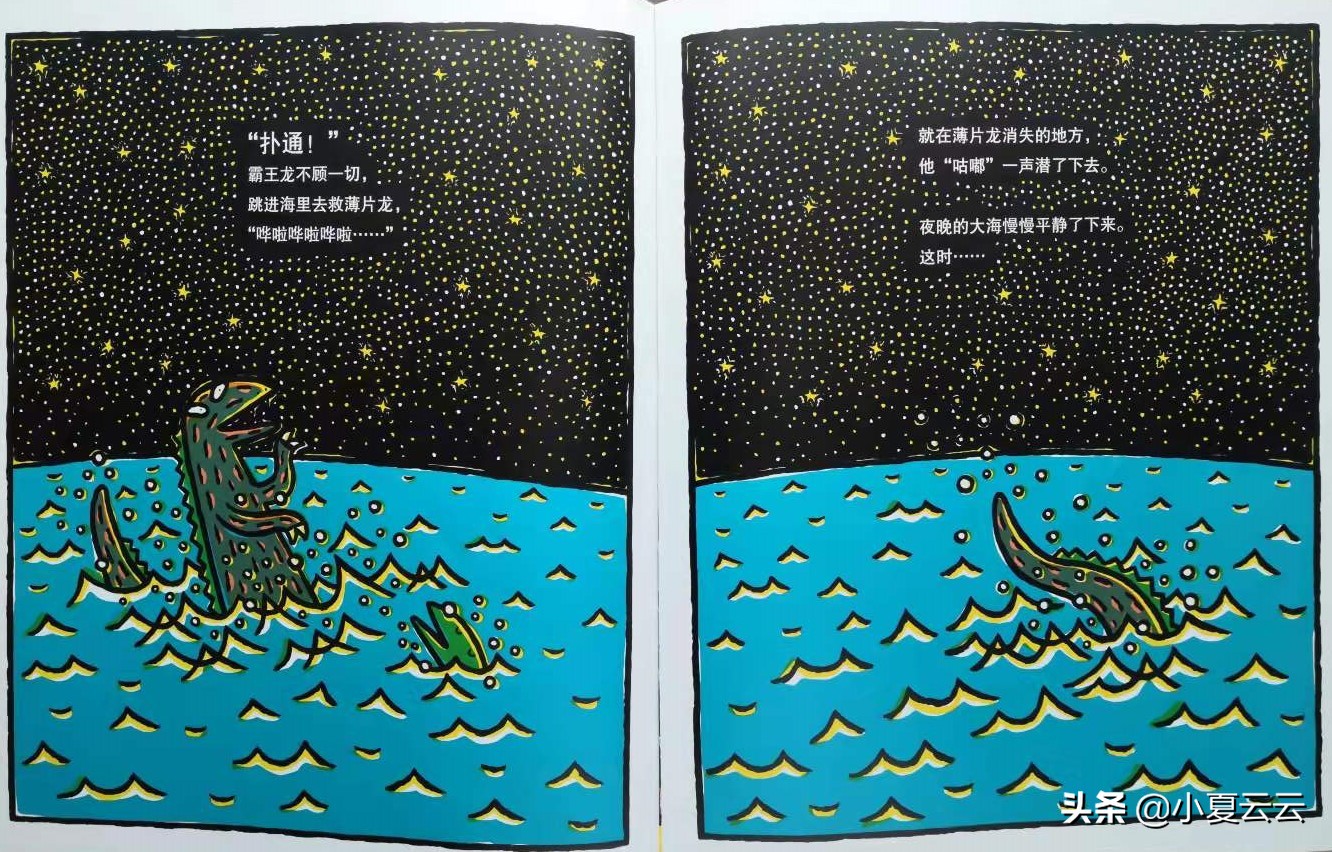 “扑通！”
霸王龙不顾一切，
跳进海里去救薄片龙，
“哗啦哗啦哗啦……”
就在薄片龙消失的地方，
他“咕嘟”一声潜了下去。
夜晚的大海慢慢平静了下来。
这时……
头条 @小夏云云